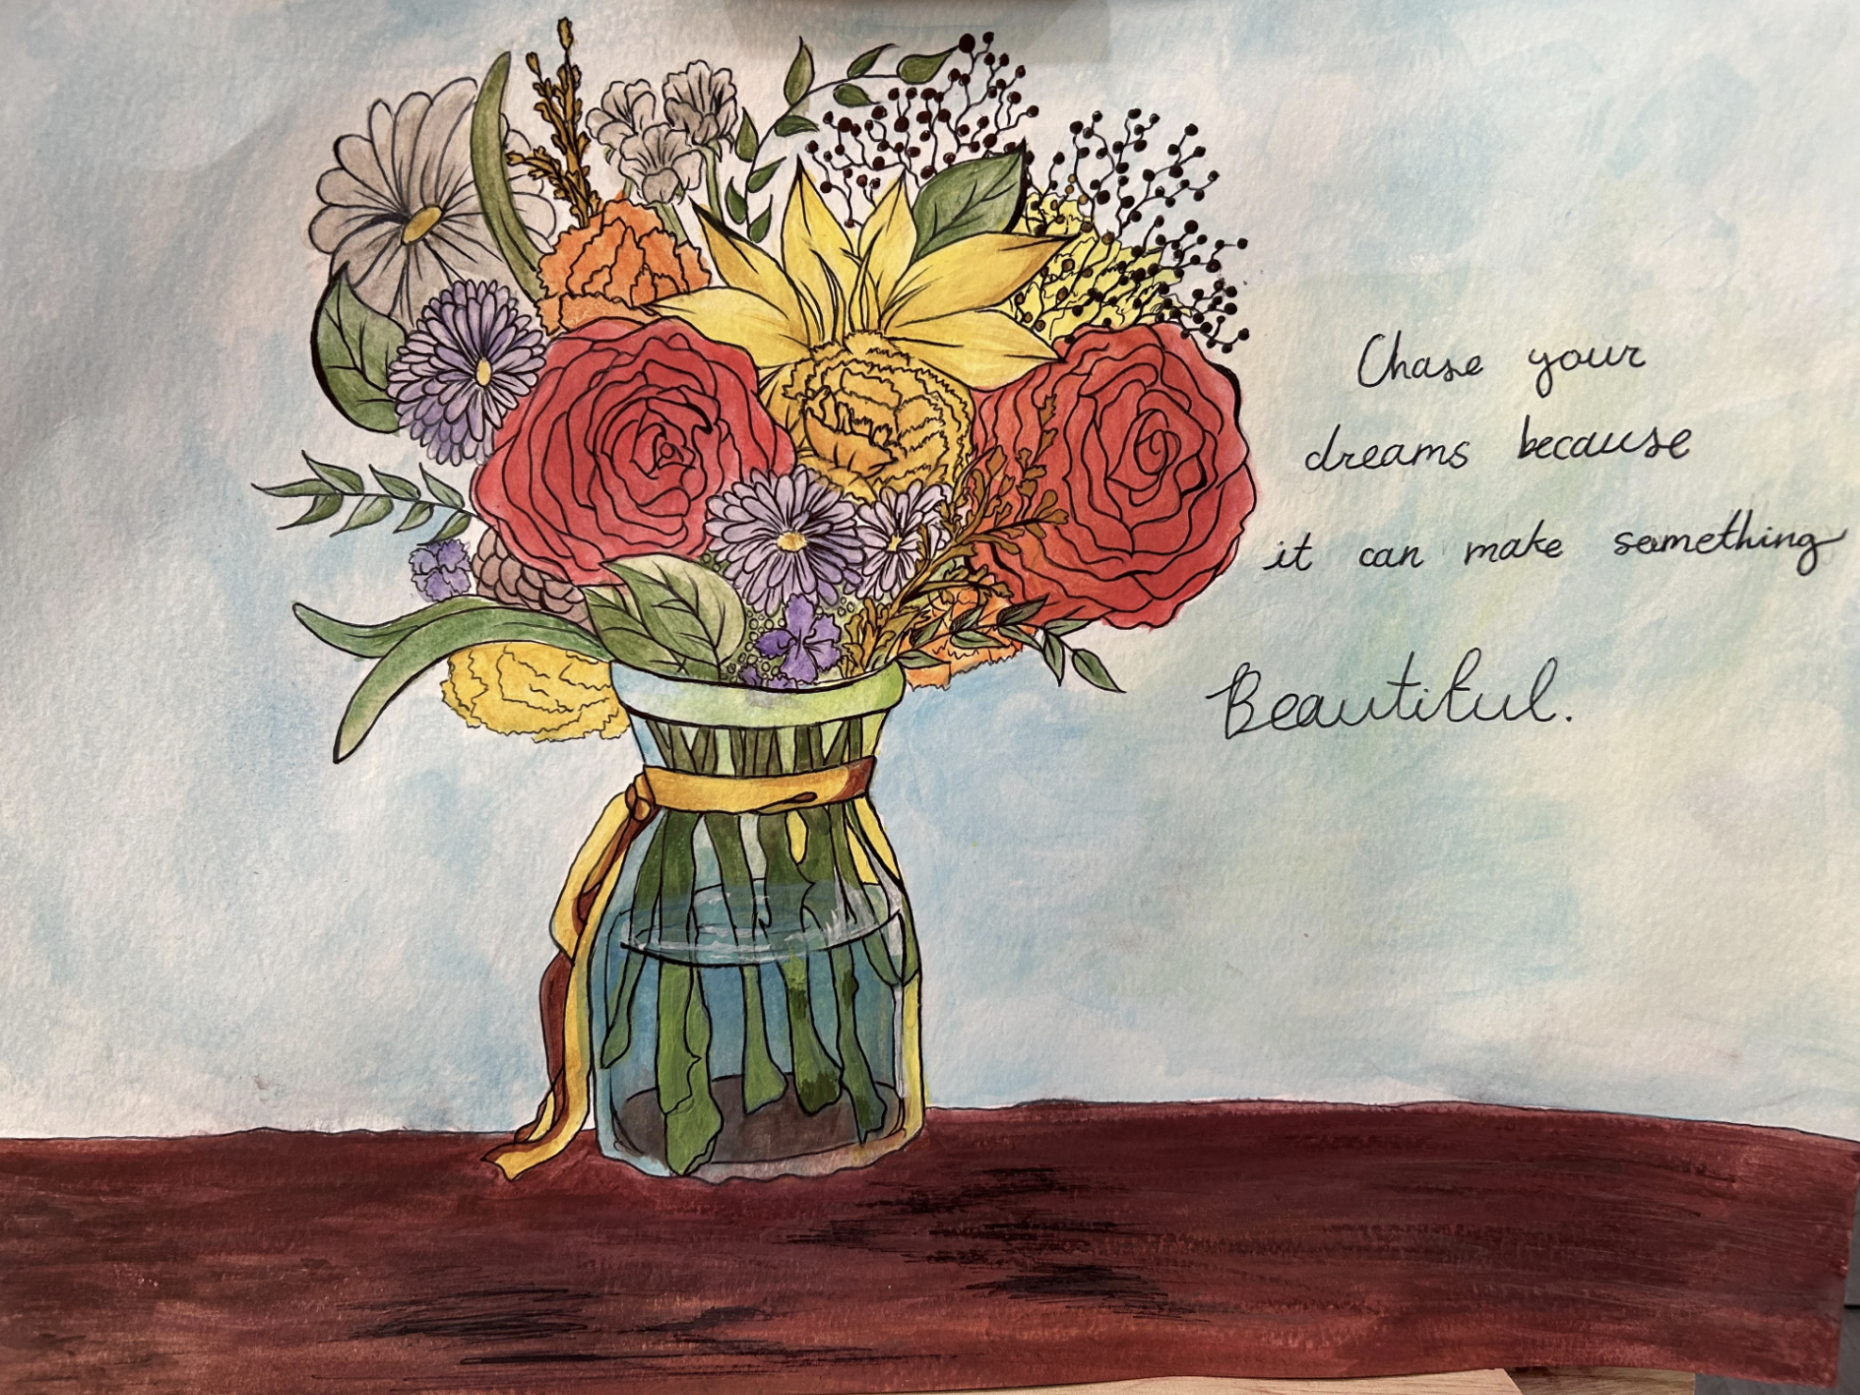 Chase your
dreams because
it can make something
Beautiful.